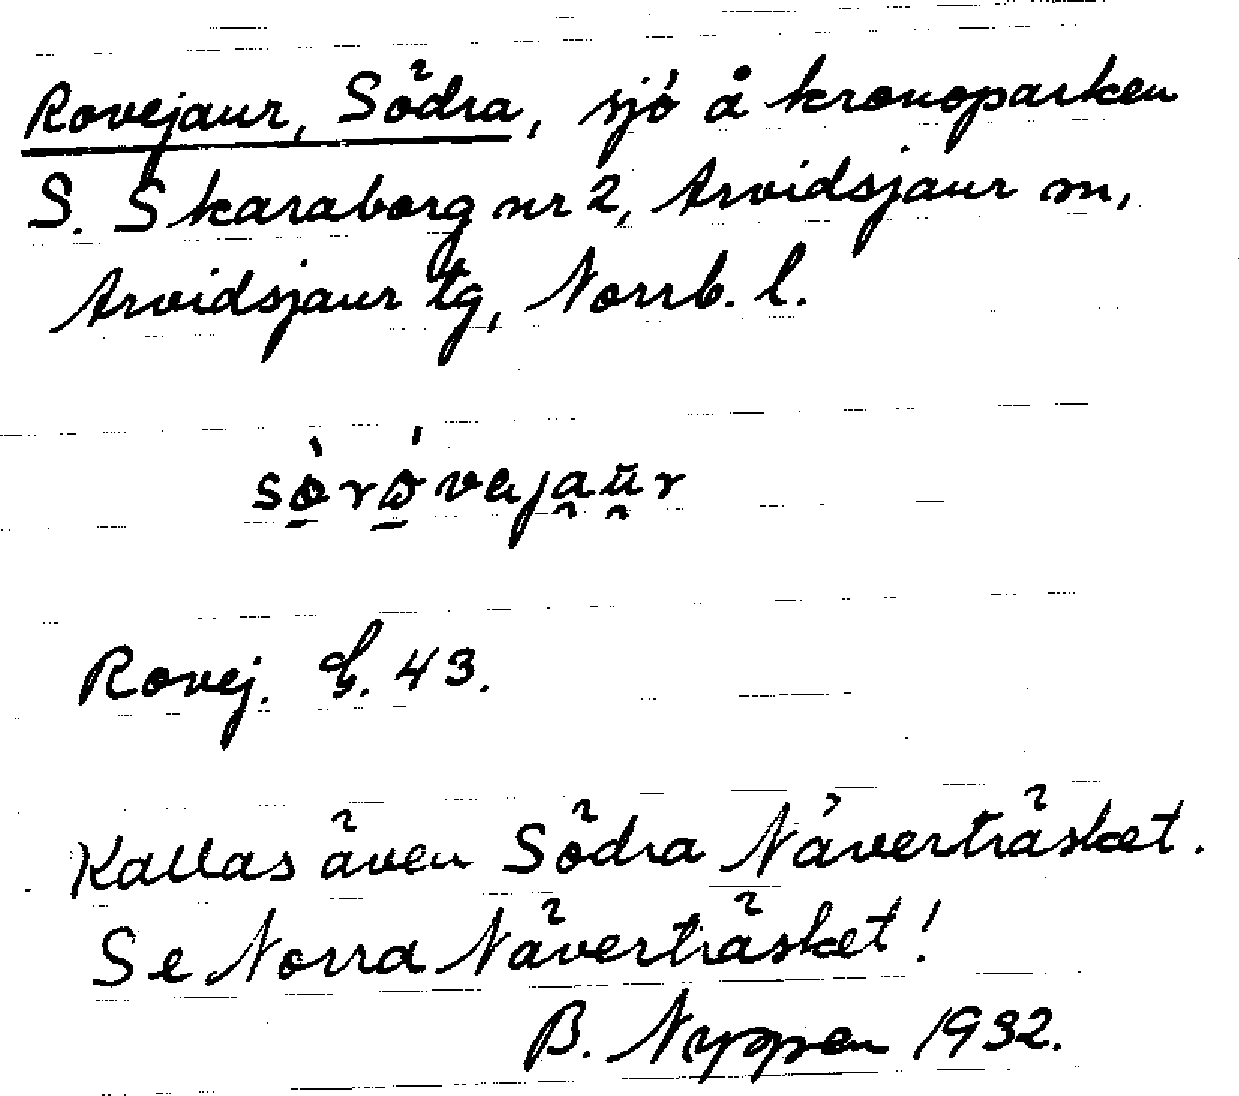 Rovejaur, Södra, sjö å kronoparken
S. Skaraborg nr 2, Arvidsjaur sn,
Arvidsjaur tg, Norrb. l.
Rovej. G. 43.
Kallas även Södra Näverträsket.
Se Norra Näverträsket!
B. Nyppen 1932.